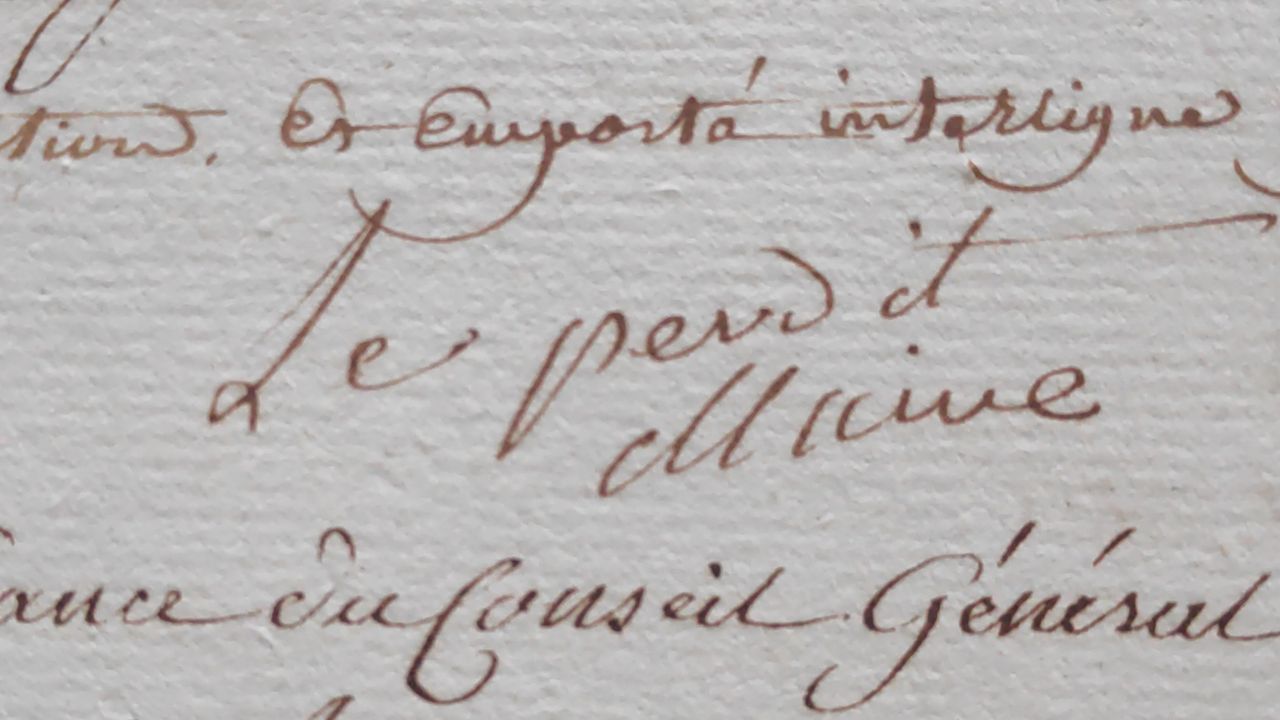 tion. Et emporté interligne
Le perdit
Maire
ance du Conseil Général